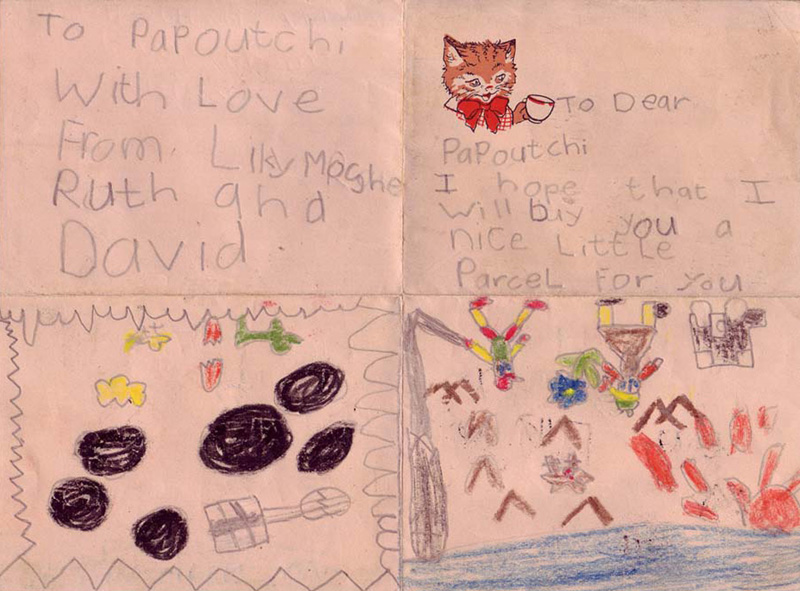 To Papoutchi
With Love
From Liky Moghe
Ruth and
David
To Dear
Papoutchi
I hope that I
will buy you a
nice Little
Parcel For you